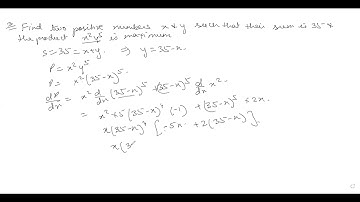 Find two positive numbers x & y such that their sum is 35 &
the product x²y⁵ is maximum
S = 35 = x+y. ⇒ y = 35-x.
P = x²y⁵
P = x²(35-x)⁵.
dP/dx = x² d/dx (35-x)⁵ + (35-x)⁵ d/dx x².
= x² × 5(35-x)⁴ (-1) + (35-x)⁵ × 2x.
x(35-x)⁴ [-5x + 2(35-x)].
x(3